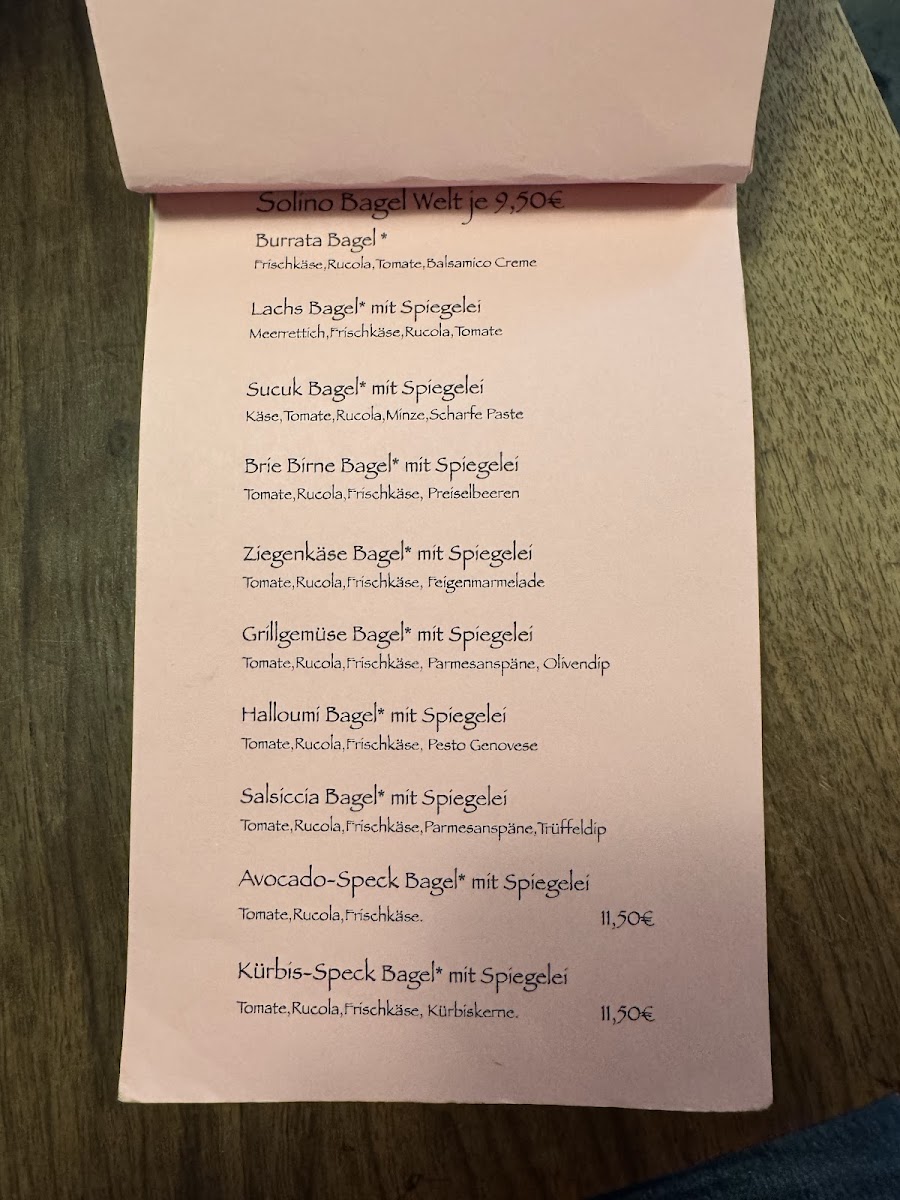 Solino Bagel Welt je 9,50€
Burrata Bagel *
Frischkäse,Rucola,Tomate,Balsamico Creme
Lachs Bagel* mit Spiegelei
Meerrettich,Frischkäse,Rucola,Tomate
Sucuk Bagel* mit Spiegelei
Käse,Tomate,Rucola,Minze,Scharfe Paste
Brie Birne Bagel* mit Spiegelei
Tomate,Rucola,Frischkäse, Preiselbeeren
Ziegenkäse Bagel* mit Spiegelei
Tomate,Rucola,Frischkäse, Feigenmarmelade
Grillgemüse Bagel* mit Spiegelei
Tomate,Rucola,Frischkäse, Parmesanspäne, Olivendip
Halloumi Bagel* mit Spiegelei
Tomate,Rucola,Frischkäse, Pesto Genovese
Salsiccia Bagel* mit Spiegelei
Tomate,Rucola,Frischkäse,Parmesanspäne,Trüffeldip
Avocado-Speck Bagel* mit Spiegelei
Tomate,Rucola,Frischkäse. 11,50€
Kürbis-Speck Bagel* mit Spiegelei
Tomate,Rucola,Frischkäse, Kürbiskerne. 11,50€